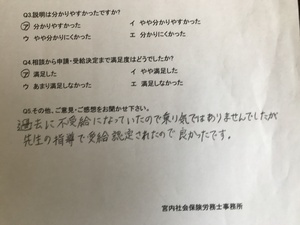 Q3.説明は分かりやすかったですか?
ア 分かりやすかった イ やや分かりやすかった
ウ やや分かりにくかった エ 分かりにくかった
Q4.相談から申請・受給決定まで満足度はどうでしたか?
ア 満足した イ やや満足した
ウ あまり満足しなかった エ 満足しなかった
Q5.その他、ご意見・ご感想をお聞かせ下さい。
過去に不受給になっていたので乗り気ではありませんでしたが
先生の指導で受給認定されたので良かったです。
宮内社会保険労務士事務所